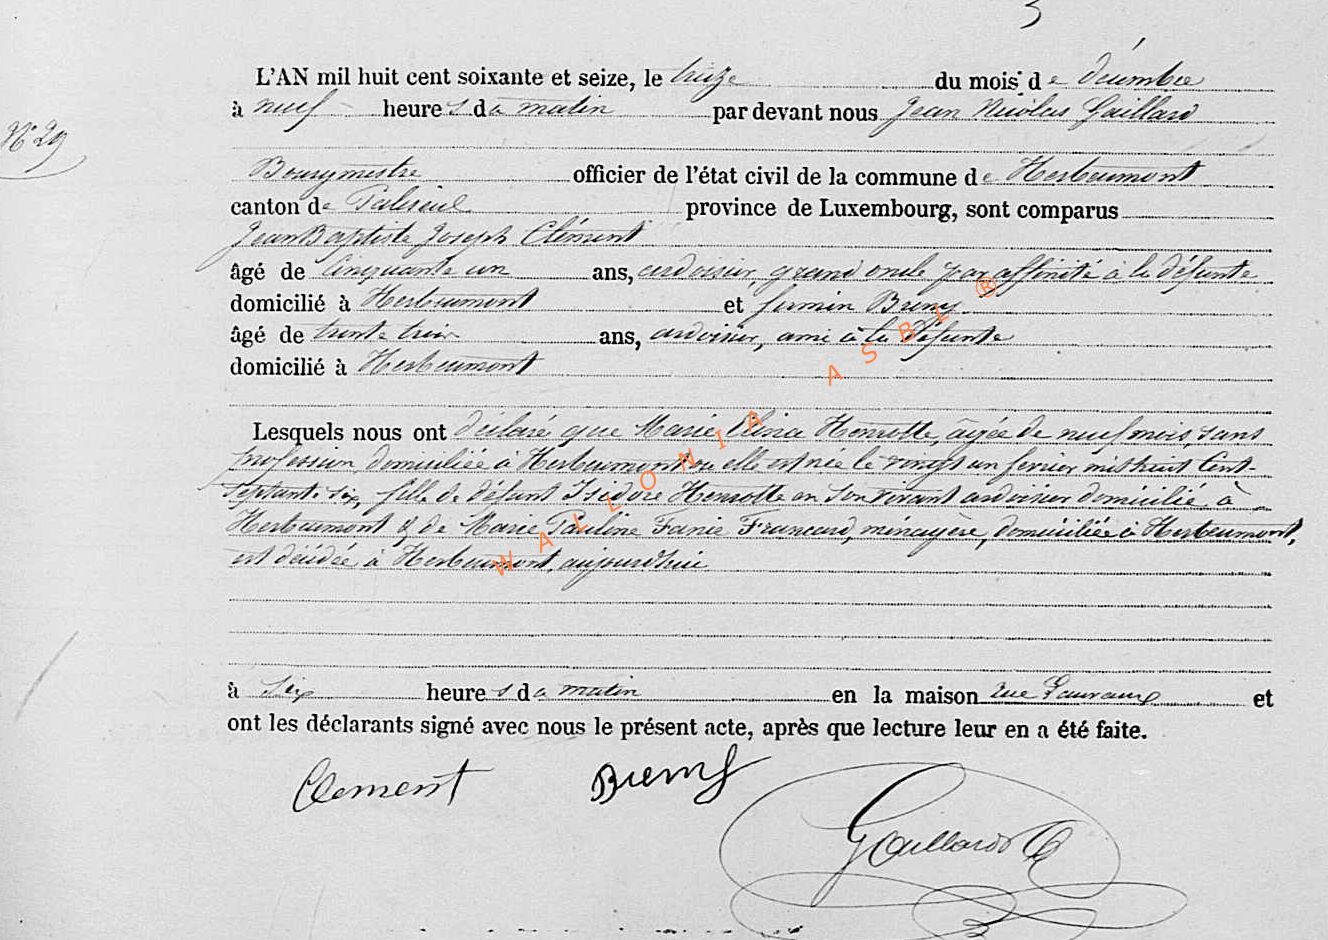 5
L'AN mil huit cent soixante et seize, le treize du mois de décembre
à neuf heures du matin par devant nous Jean Nicolas Gaillard
N° 29
Bourgmestre officier de l'état civil de la commune de Herbeumont
canton de Paliseul province de Luxembourg, sont comparus
Jean Baptiste Joseph Clément
âgé de cinquante un ans, ardoisier, grand oncle par affinité à la défunte
domicilié à Herbeumont et firmin Bremy
âgé de trente trois ans, ardoisier, ami à la défunte
domicilié à Herbeumont
Lesquels nous ont déclaré que Marie Henrotte, âgée de neuf mois, sans
profession domiciliée à Herbeumont ou elle est née le vingt un fevrier mil huit Cent-
Septante six, fille de défunt Isidore Henrotte en Son vivant ardoisier domicilié à
Herbeumont & de Marie Pauline Fanie Francard, ménagère, domiciliée à Herbeumont,
est décédée à Herbeumont aujourdhui
à six heures du matin en la maison rue et
ont les déclarants signé avec nous le présent acte, après que lecture leur en a été faite.
Clement Bremy
Gaillard
WALLONIA ASBL ®